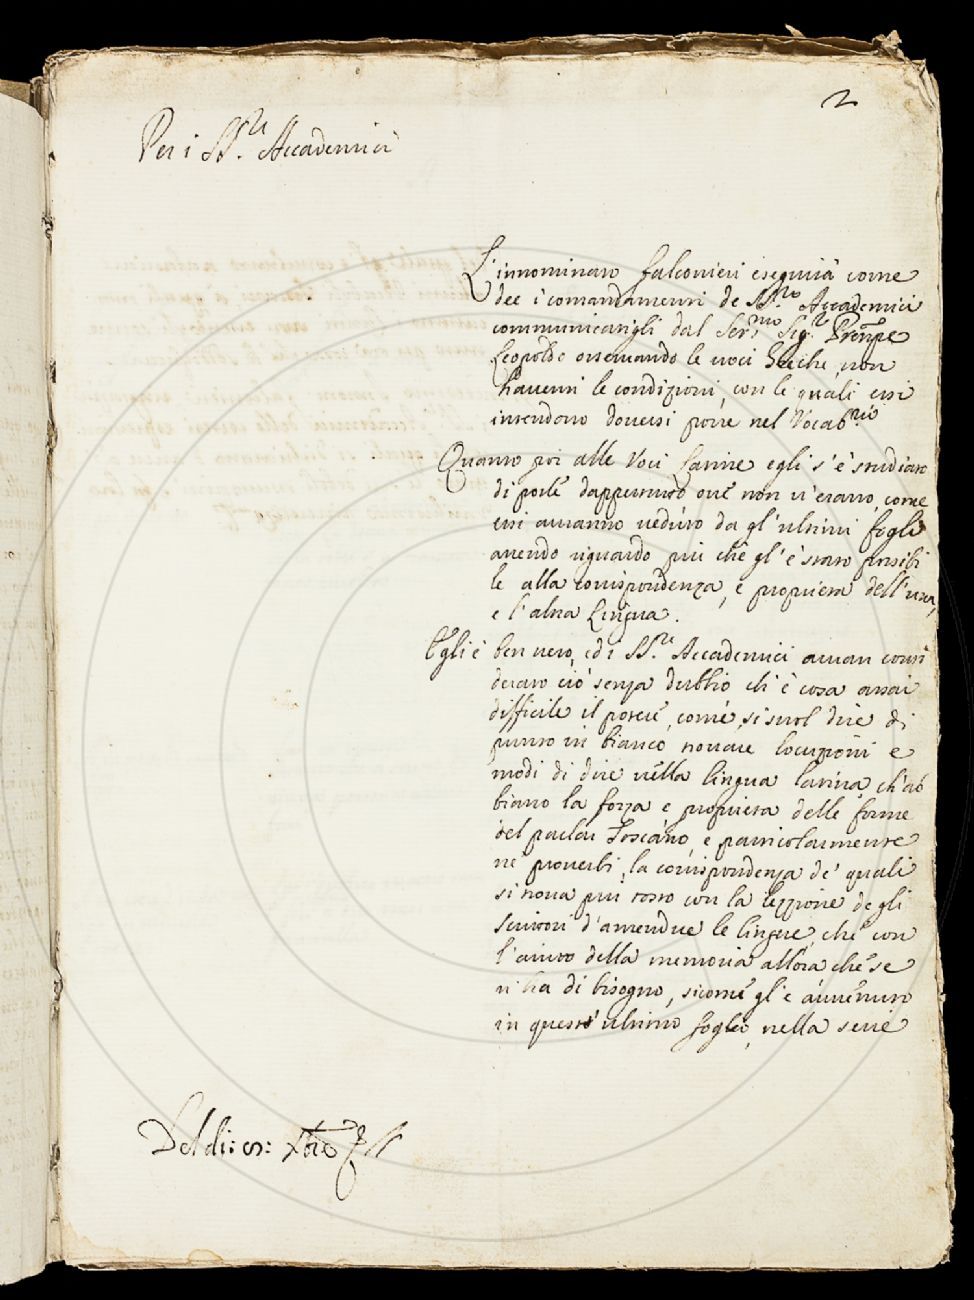 2
Per i SS.ri Accademici
L'innominato Falconieri eseguirà come
dee i comandamenti de SS.ri Accademici
communicatigli dal Ser.mo Sig.r Prenpe
Leopoldo osservando le voci Greche, non
haventi le condizioni, con le quali essi
intendono doversi porre nel Vocab.rio
Quanto poi alle Voci Latine egli s'è studiato
di porle dappertutto ove non v'erano, come
essi avranno veduto da gl'ultimi fogli
avendo riguardo più che gl'è stato possibi
le alla corrispondenza, e proprietà dell'una,
e l'altra Lingua.
Egli è ben vero, ed i SS.ri Accademici avran consi
derato ciò senza dubbio ch'è cosa assai
difficile il potere, come si suol dire di
punto in bianco trovare locuzioni e
modi di dire nella lingua latina, ch'ab
biano la forza e proprietà delle forme
del parlar Toscano, e particolarmente
ne proverbi, la corrispondenza de' quali
si trova più tosto con la lezzione degli
scrittori d'amendue le lingue, che con
l'aiuto della memoria allora che se
n'ha di bisogno, sicome gl'è avvenuto
in quest'ultimo foglio, nella serie
Del di: : Xbre